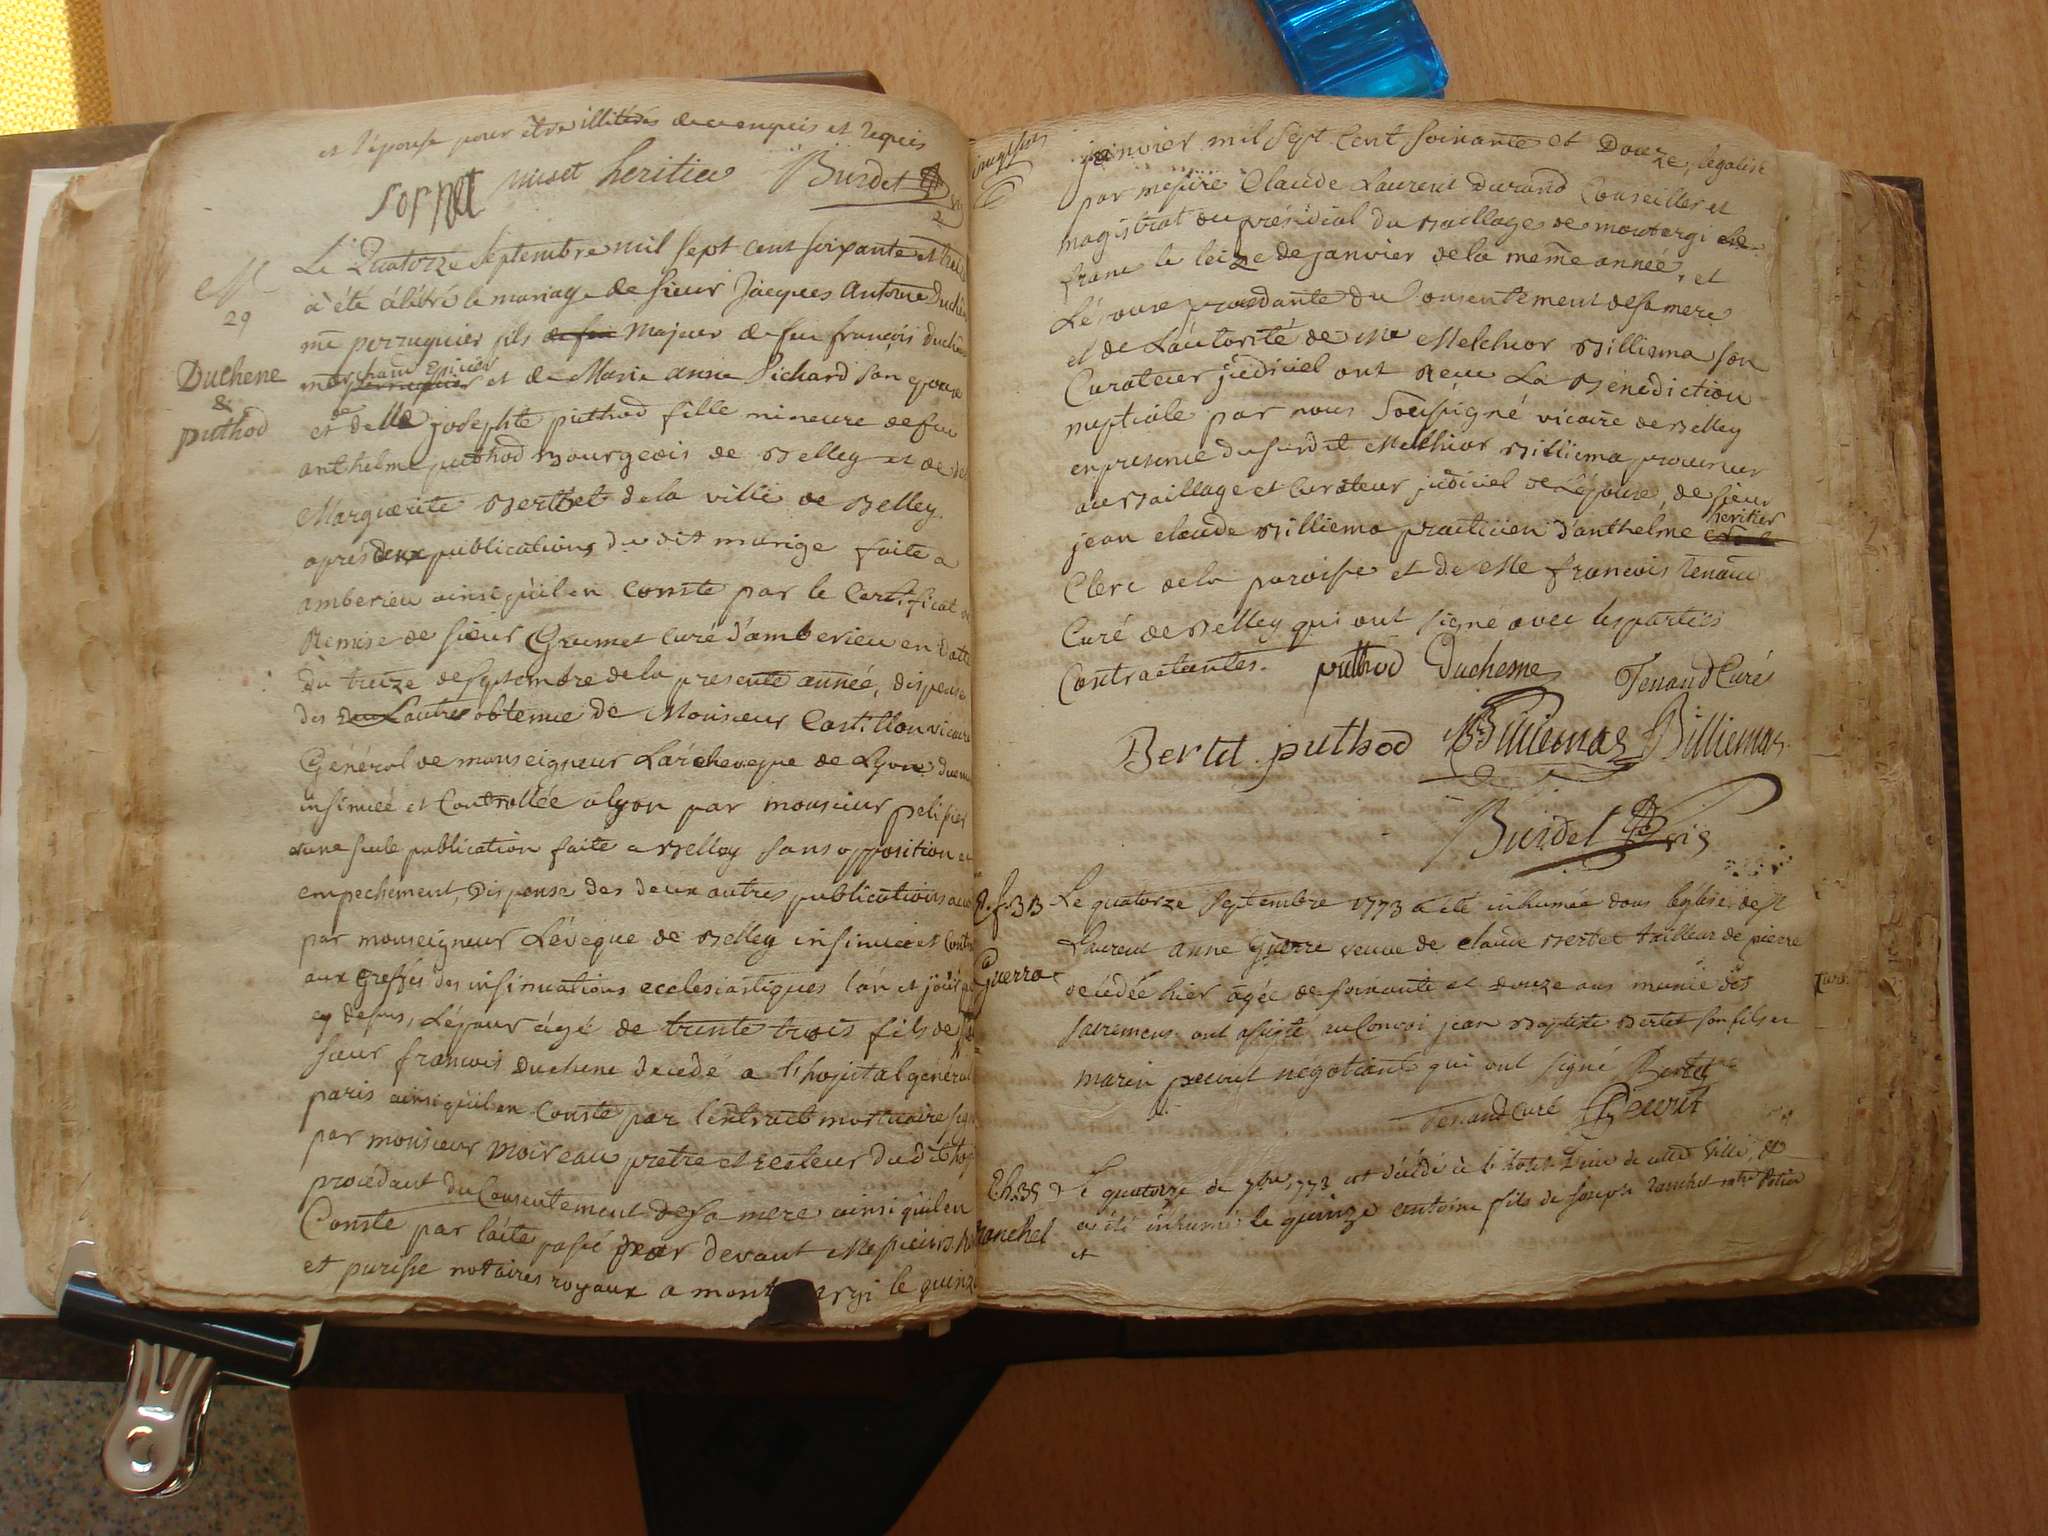 et l'épouse pour être illiterés de ce enquis et requis
muset heritier Burdet
M
29
Duchene
&
puthod
Le Quatorze Septembre mil sept cent soixante et treize
a été célébré le mariage de sieur Jacques Antoine Duchêne
me perruquier fils de feu Majeur de feu françois duchêne
marchand Epicier
perruquier et de Marie anne Pichard son epouse
et de delle josephte puthod fille mineure de feu
anthelme puthod Bourgeois de Belley et de de
Marguerite Bertet de la ville de Belley
apres deux publications du dit marige faite a
amberieu ainsi qu'il en conste par le Certificat de
Remise de sieur Grumet curé d'amberieu en datte
du treize de septembre de la presente année, dispense
des deux autres obtenue de Monsieur Castillon vicaire
Général de monseigneur L'archeveque de Lyon duement
insinuée et Controllée a lyon par monsieur pelissier
et une seule publication faite a Belley sans opposition ni
empechement, Dispense des deux autres publications
par monseigneur L'éveque de Belley insinuée et Contr
aux Greffes des insinuations ecclesiastiques l'an et jour que
cy dessus, L'époux âgé de trente trois fils de
sieur francois Duchene decedé a l'hopital général
paris ainsi qu'il en Conste par l'extrait mortuaire sign
par monsieur Moireau pretre et recteur du dit hop
procédant du Consentement de sa mere ainsi qu'il en
Conste par l'acte passé par devant Messieurs
et purisse notaires royaux a montargi le quinze
janvier mil sept Cent soixante et Douze, legalisé
par messire Claude Laurent Durand Conseiller et
magistrat du présidial du Baillage de montargi
franc le seize de janvier de la meme année, et
L'épouse procédante du Consentement de sa mere
et de L'autorité de Me Melchior Billiema son
Curateur judiciel ont recu La Bénédiction
nuptiale par nous Soussigné vicaire de Belley
en presence du susdit Melchior Billiema procureur
au Baillage et Curateur judiciel de L'épouse, de sieur
heritier
jean claude Billiema praticien d'anthelme
Clerc de la paroisse et de Me francois Tenand
Curé de Belley qui ont signé avec les parties
Contractantes. puthod Duchesne Tenand Curé
Bertet puthod Billiemaz Billiemaz
Burdet vic
E.f.33
Guerre
Le quatorze Septembre 1773 a été inhumée dans l'église de st
Laurent anne Guerre veuve de claude Bertet tailleur de pierre
decédée hier agée de soixante et douze ans munie des
sacremens ont assisté au Convoi jean Baptiste Bertet son fils et
marin peurit négotiant qui ont signé Bertet
Tenand Curé Peurit
E.h.35
ranchet
Le quatorze de 7bre 1773 est décédé a l'hotel Dieu de cette ville, et
a été inhumé le quinze antoine fils de joseph ranchet mtre
et